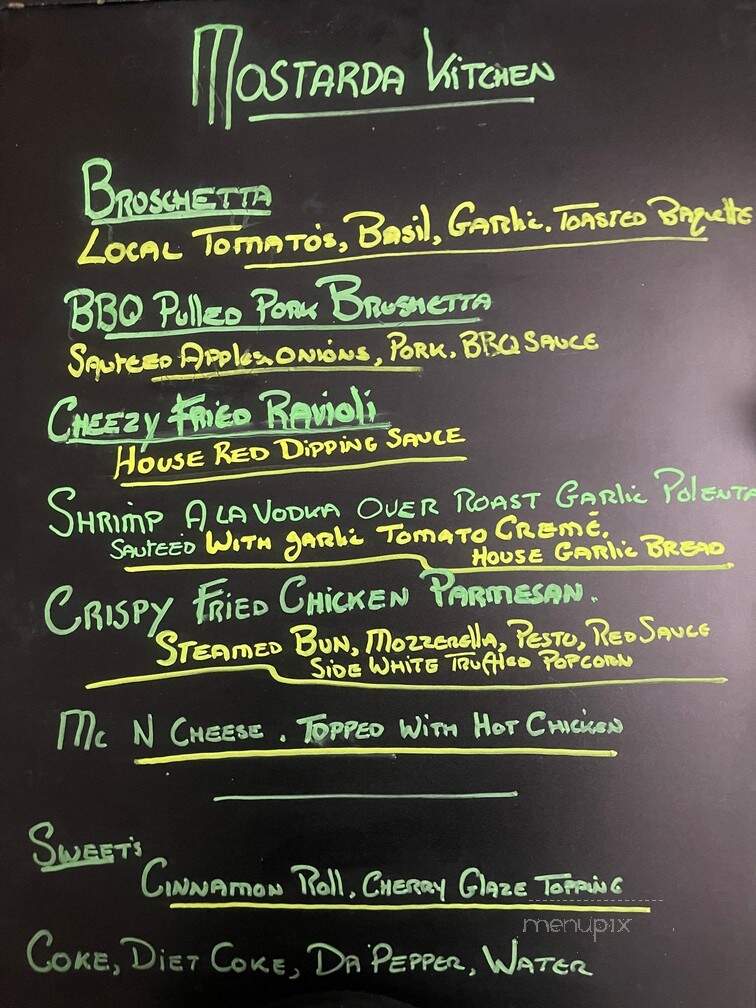 MOSTARDA KITCHEN
BRUSCHETTA
LOCAL TOMATO'S, BASIL, GARLIC. TOASTED BAQUETTE
BBQ PULLED PORK BRUSHETTA
SAUTEED APPLES ONIONS, PORK, BBQ SAUCE
CHEEZY FRIED RAVIOLI
HOUSE RED DIPPING SAUCE
SHRIMP A LA VODKA OVER ROAST GARLIC POLENTA
SAUTEED WITH GARLIC TOMATO CREME.
HOUSE GARLIC BREAD
CRISPY FRIED CHICKEN PARMESAN.
STEAMED BUN, MOZZERELLA, PESTO, RED SAUCE
SIDE WHITE TRUFFLED POPCORN
MC N CHEESE. TOPPED WITH HOT CHICKEN
SWEET'S
CINNAMON ROLL, CHERRY GLAZE TOPPING
menupix
COKE, DIET COKE, DR PEPPER, WATER